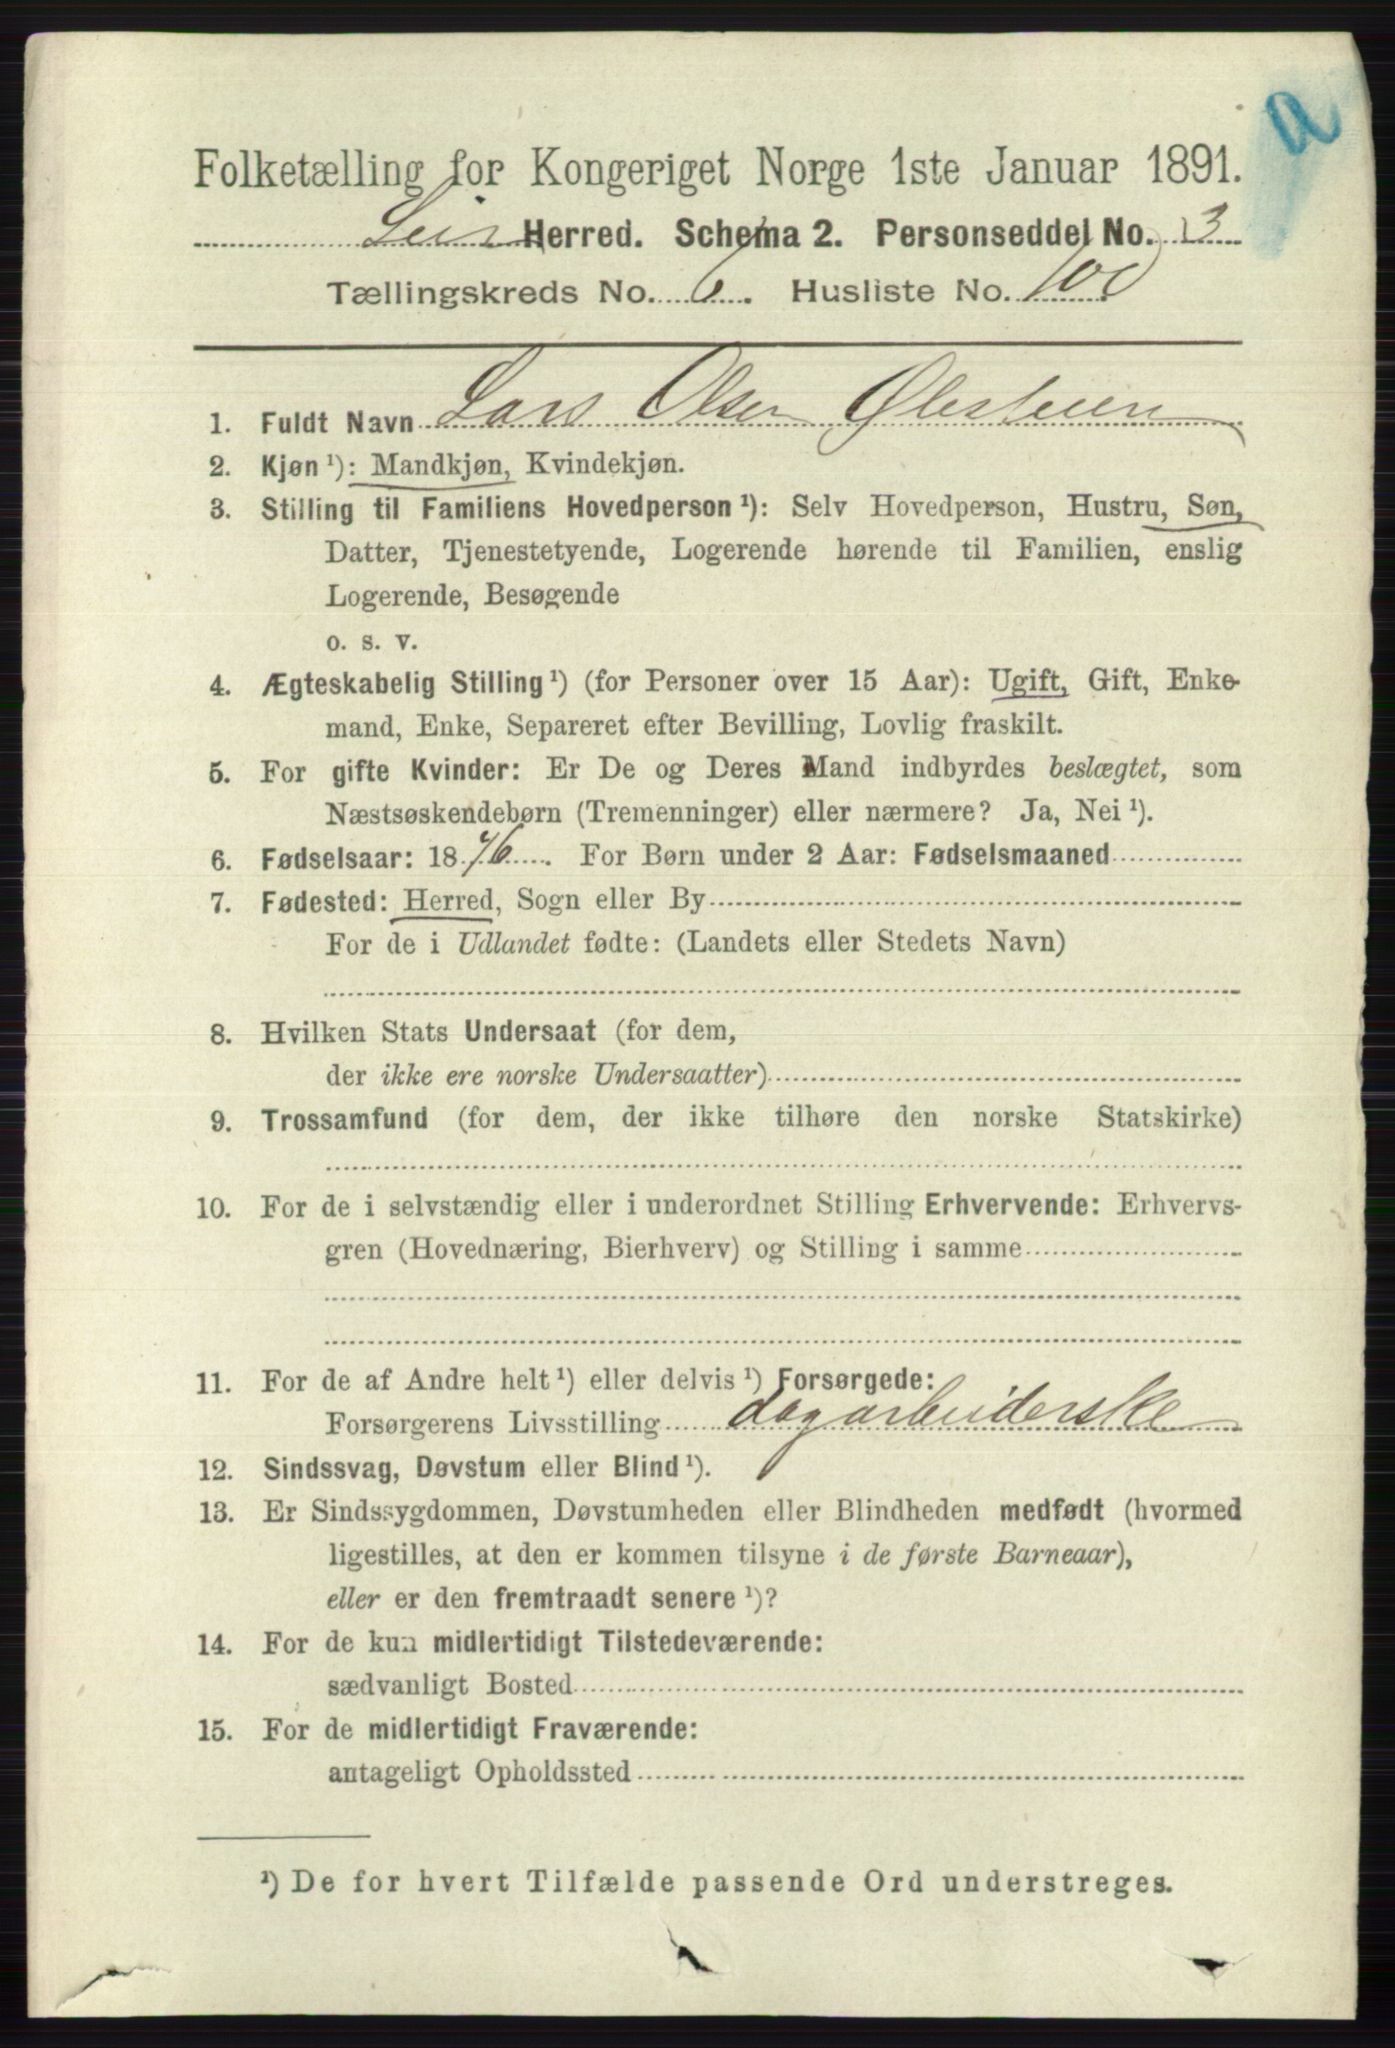 a
Folketælling for Kongeriget Norge 1ste Januar 1891.
Lier Herred. Schema 2. Personseddel No. 3
Tællingskreds No. 6. Husliste No. 100
1. Fuldt Navn Lars Olsen
2. Kjøn ¹): Mandkjøn, Kvindekjøn.
3. Stilling til Familiens Hovedperson ¹): Selv Hovedperson, Hustru, Søn,
Datter, Tjenestetyende, Logerende hørende til Familien, enslig
Logerende, Besøgende
o. s. v.
4. Ægteskabelig Stilling ¹) (for Personer over 15 Aar): Ugift, Gift, Enke-
mand, Enke, Separeret efter Bevilling, Lovlig fraskilt.
5. For gifte Kvinder: Er De og Deres Mand indbyrdes beslægtet, som
Næstsøskendebørn (Tremenninger) eller nærmere? Ja, Nei ¹).
6. Fødselsaar: 1876. For Børn under 2 Aar: Fødselsmaaned
7. Fødested: Herred, Sogn eller By
For de i Udlandet fødte: (Landets eller Stedets Navn)
8. Hvilken Stats Undersaat (for dem,
der ikke ere norske Undersaatter)
9. Trossamfund (for dem, der ikke tilhøre den norske Statskirke)
10. For de i selvstændig eller i underordnet Stilling Erhvervende: Erhvervs-
gren (Hovednæring, Bierhverv) og Stilling i samme
11. For de af Andre helt ¹) eller delvis ¹) Forsørgede:
Forsørgerens Livsstilling dagarbeiderske
12. Sindssvag, Døvstum eller Blind ¹).
13. Er Sindssygdommen, Døvstumheden eller Blindheden medfødt (hvormed
ligestilles, at den er kommen tilsyne i de første Barneaar),
eller er den fremtraadt senere ¹)?
14. For de kun midlertidigt Tilstedeværende:
sædvanligt Bosted
15. For de midlertidigt Fraværende:
antageligt Opholdssted
¹) De for hvert Tilfælde passende Ord understreges.